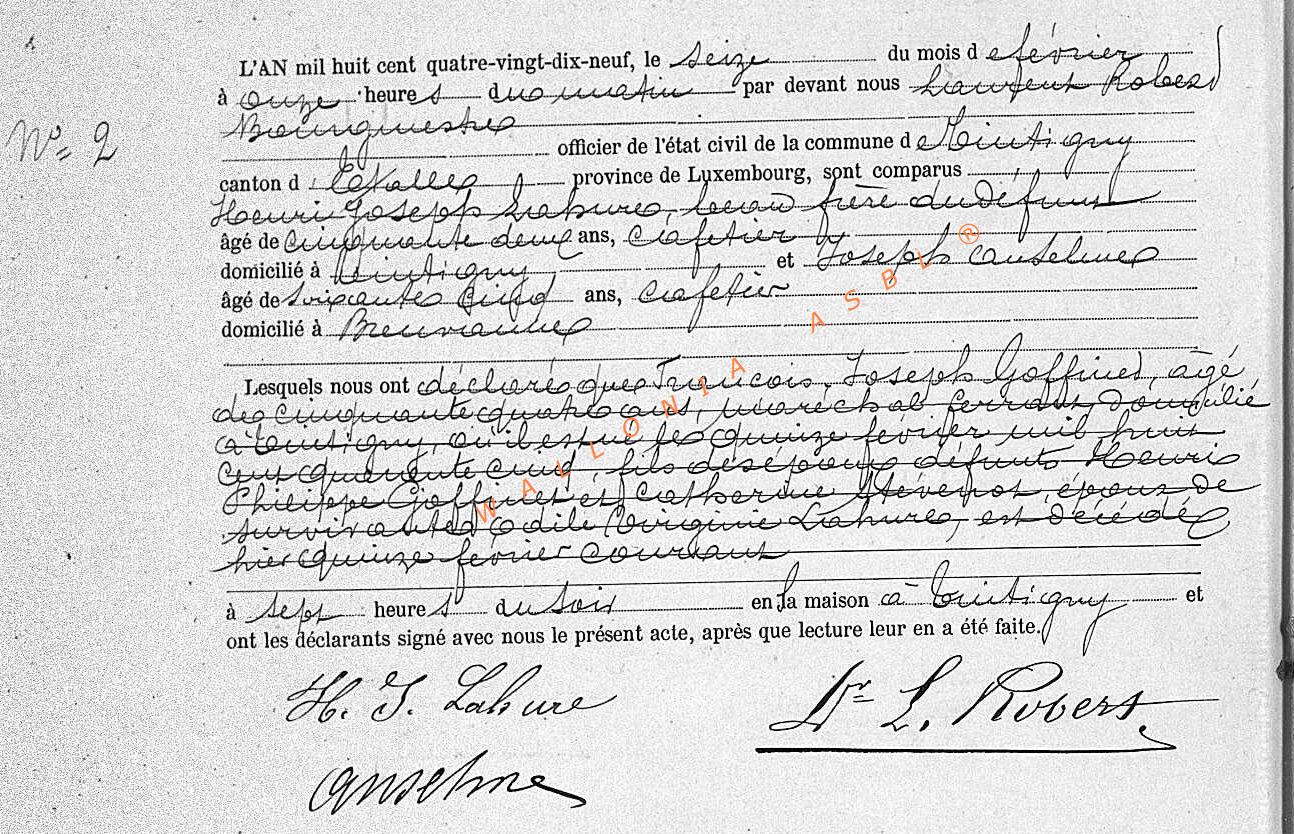 L'AN mil huit cent quatre-vingt-dix-neuf, le seize du mois de février
à onze heures du matin par devant nous Laurent Robert
Bourgmestre
Nº 2
officier de l'état civil de la commune de Tintigny
canton d'Etalle province de Luxembourg, sont comparus
Henri Joseph Lahure, beau frère du défunt
âgé de cinquante deux ans, cafetier
domicilié à Tintigny et Joseph Anselme
âgé de soixante cinq ans, cafetier
domicilié à Breuvanne
Lesquels nous ont déclaré que François Joseph Goffinet, âgé
de cinquante quatre ans, maréchal ferrant domicilié
à Tintigny, où il est né le quinze fevrier mil huit
cent quarante cinq, fils des époux défunts Henri
Philippe Goffinet et Catherine Stévenot, époux de
survivante Odile Virginie Lahure, est décédé
hier quinze fevrier courant
à sept heures du soir en la maison à Tintigny et
ont les déclarants signé avec nous le présent acte, après que lecture leur en a été faite.
H. J. Lahure
Dr L. Robert.
Anselme
WALLONIA ASBL ®